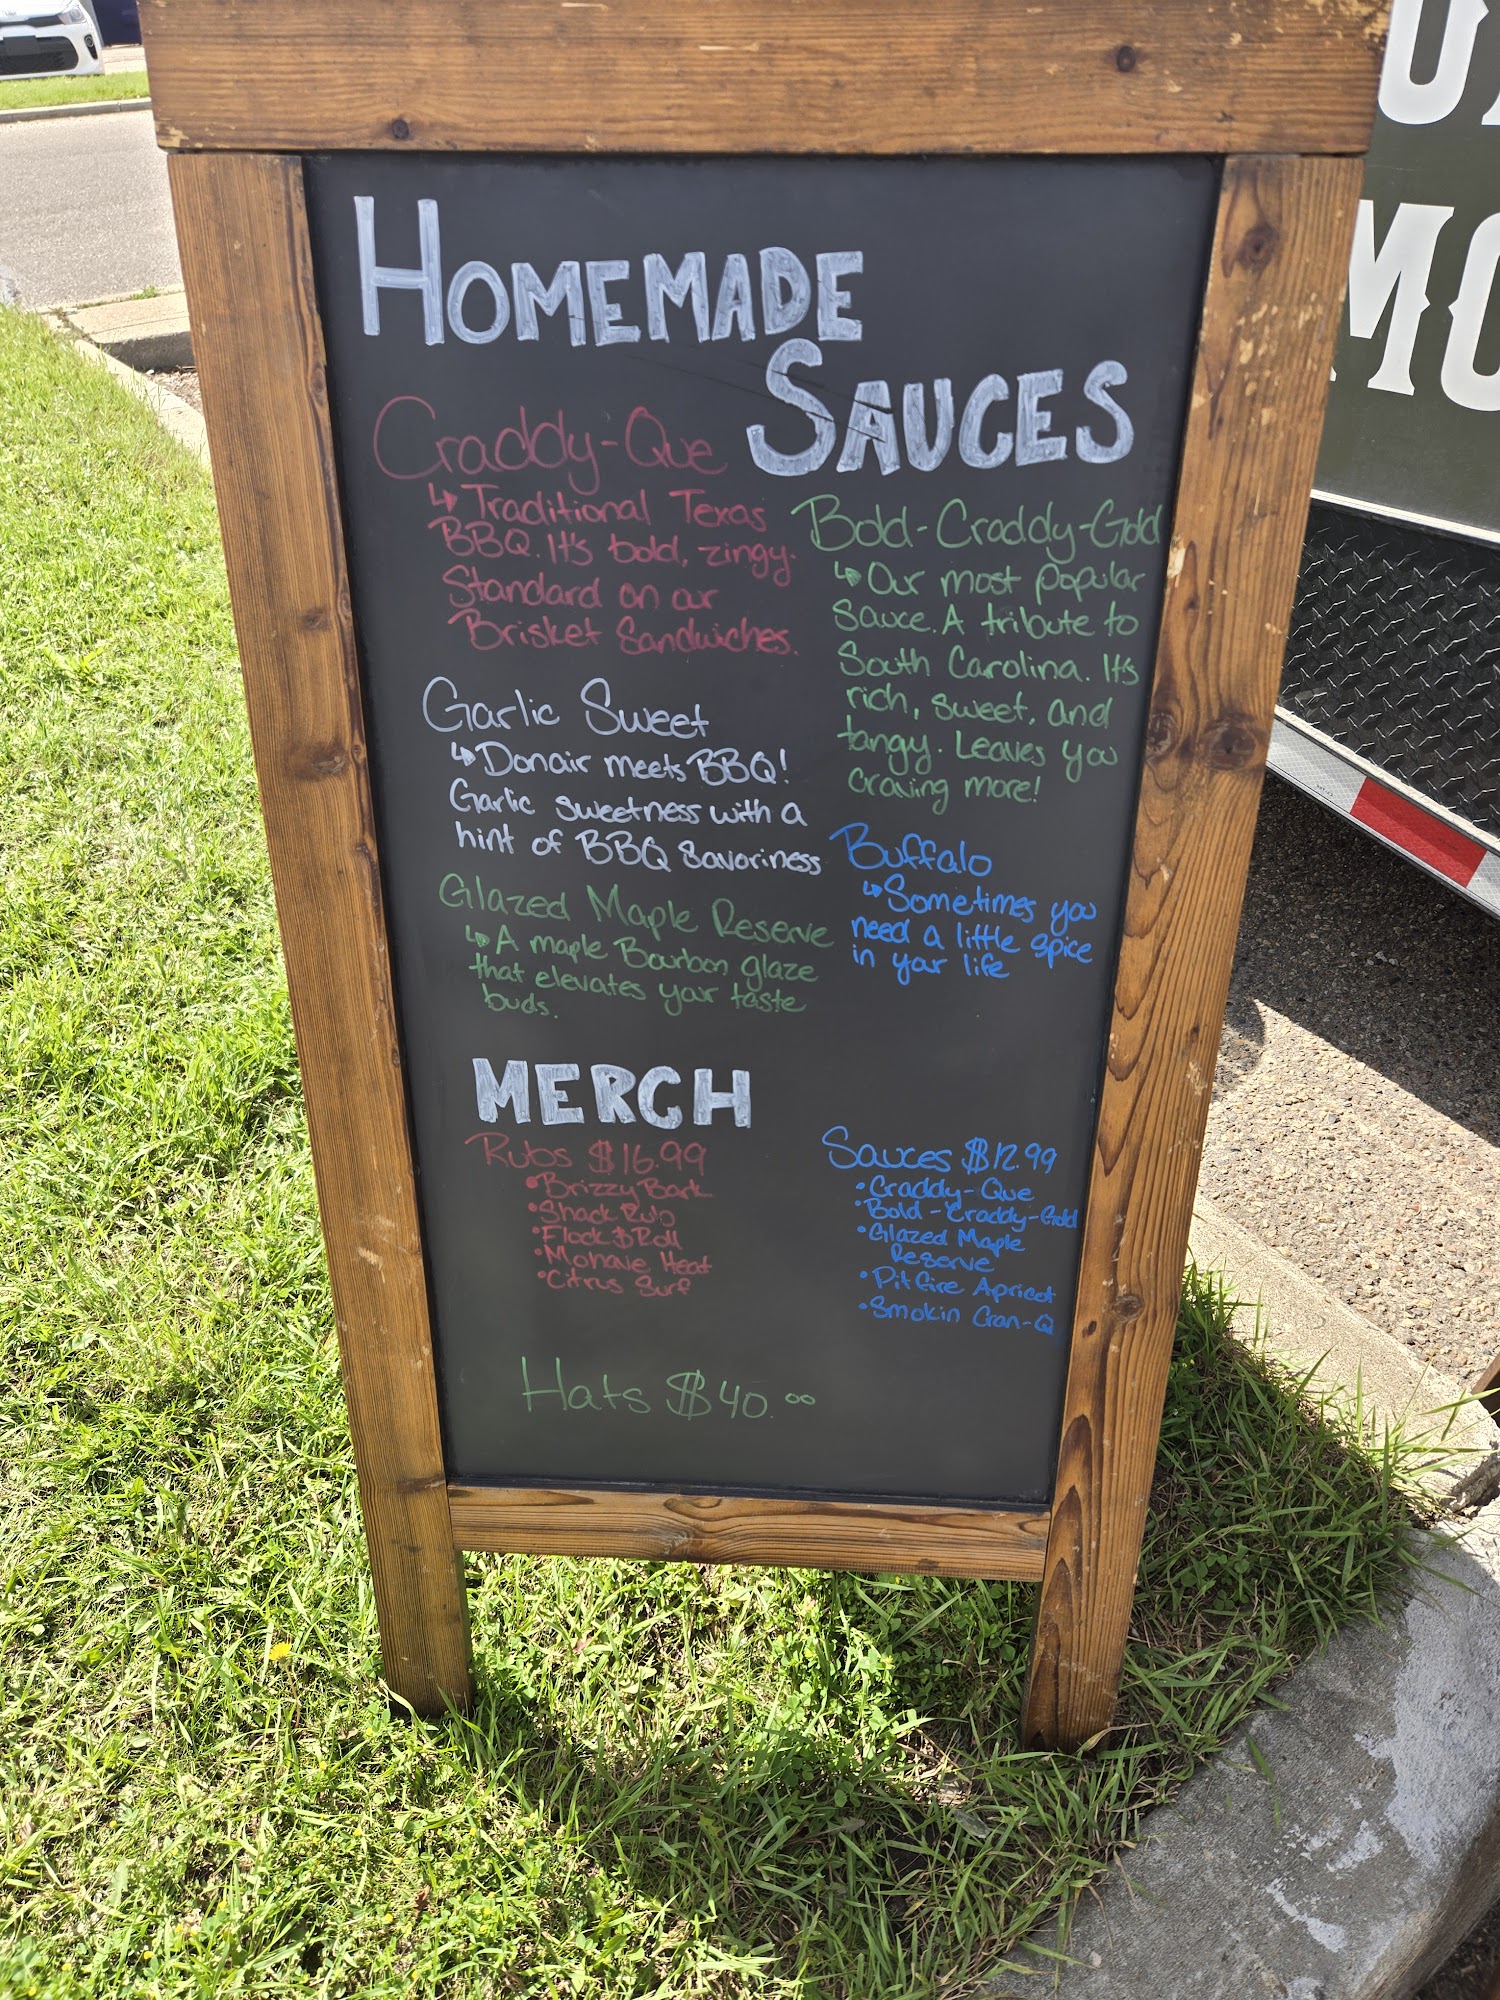 HOMEMADE
SAUCES
Craddy-Que
↳ Traditional Texas
BBQ. It's bold, zingy.
Standard on our
Brisket Sandwiches.
Garlic Sweet
↳ Donair meets BBQ!
Garlic sweetness with a
hint of BBQ Savoriness
Glazed Maple Reserve
↳ A maple Bourbon glaze
that elevates your taste
buds.
Bold-Craddy-Gold
↳ Our most popular
Sauce. A tribute to
South Carolina. It's
rich, sweet, and
tangy. Leaves you
craving more!
Buffalo
↳ Sometimes you
need a little spice
in your life
MERCH
Rubs $16.99
• Brizzy Bark
• Shack Rub
• Flock $ Roll
• Mohave Heat
• Citrus Surf
Sauces $12.99
• Craddy-Que
• Bold-Craddy-Gold
• Glazed Maple
Reserve
• Pit Fire Apricot
• Smokin Cran-Q
Hats $40.00
MO